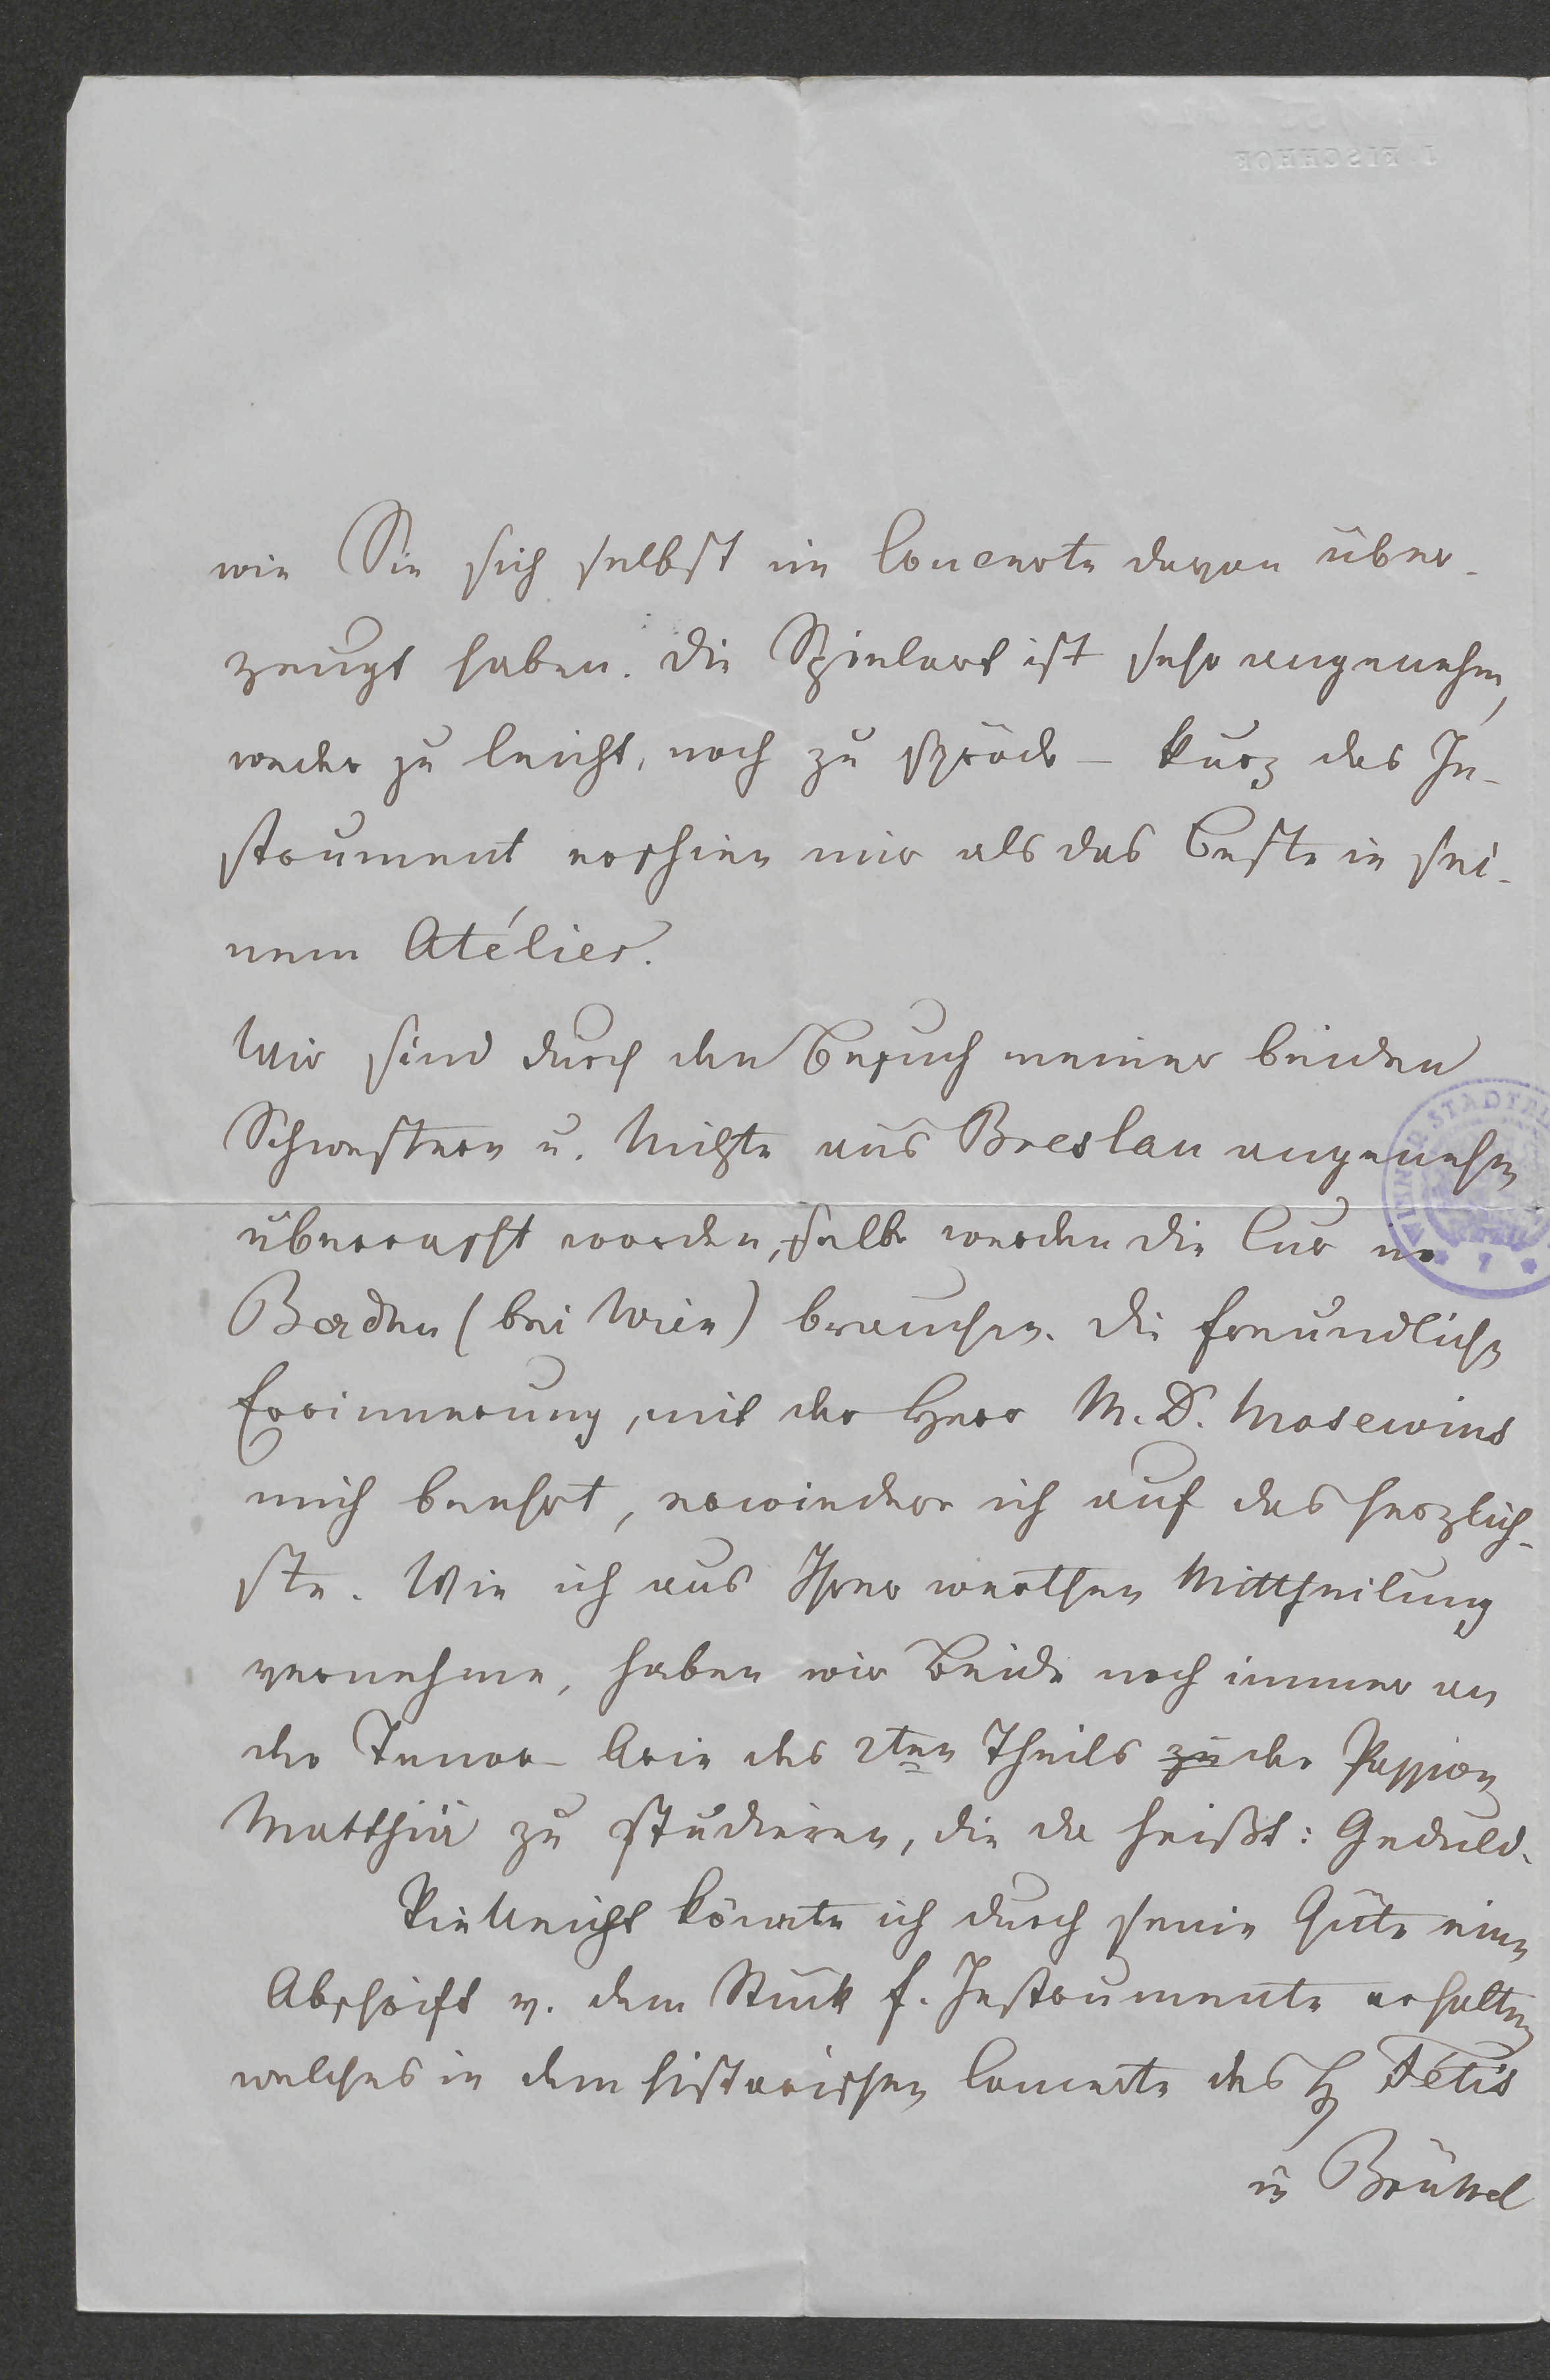 J. FISCHHOF
wie Sie sich selbst im Concerte davon über-
zeugt haben. Die Spielart ist sehr angenehm,
weder zu leicht, noch zu spröde – kurz das In-
strument erschien mir als das Beste in sei-
nem Atélier.
Wir sind durch den Besuch meiner beiden
Schwestern u. Nichte aus Breslau angenehm
überrascht worden, selbe werden die Cur in
Baden (bei Wien) brauchen. Die freundliche
Erinnerung, mit der Herr M. D. Mosewius
mich beehrt, erwiedere ich auf das herzlich-
ste. Wie ich aus Ihrer werthen Mittheilung
vernehme, haben wir Beide noch immer an
der Tenor-Arie des 2ten Theils zu der Passion
Matthäi zu studieren, die da heißt: Geduld.
Vielleicht könnte ich durch seine Güte eine
Abschrift v. dem Stück f. Instrumente erhalten
welches in dem historischen Concerte des H Fétis
in Brüssel
WIENER STADTBI
* 7 *